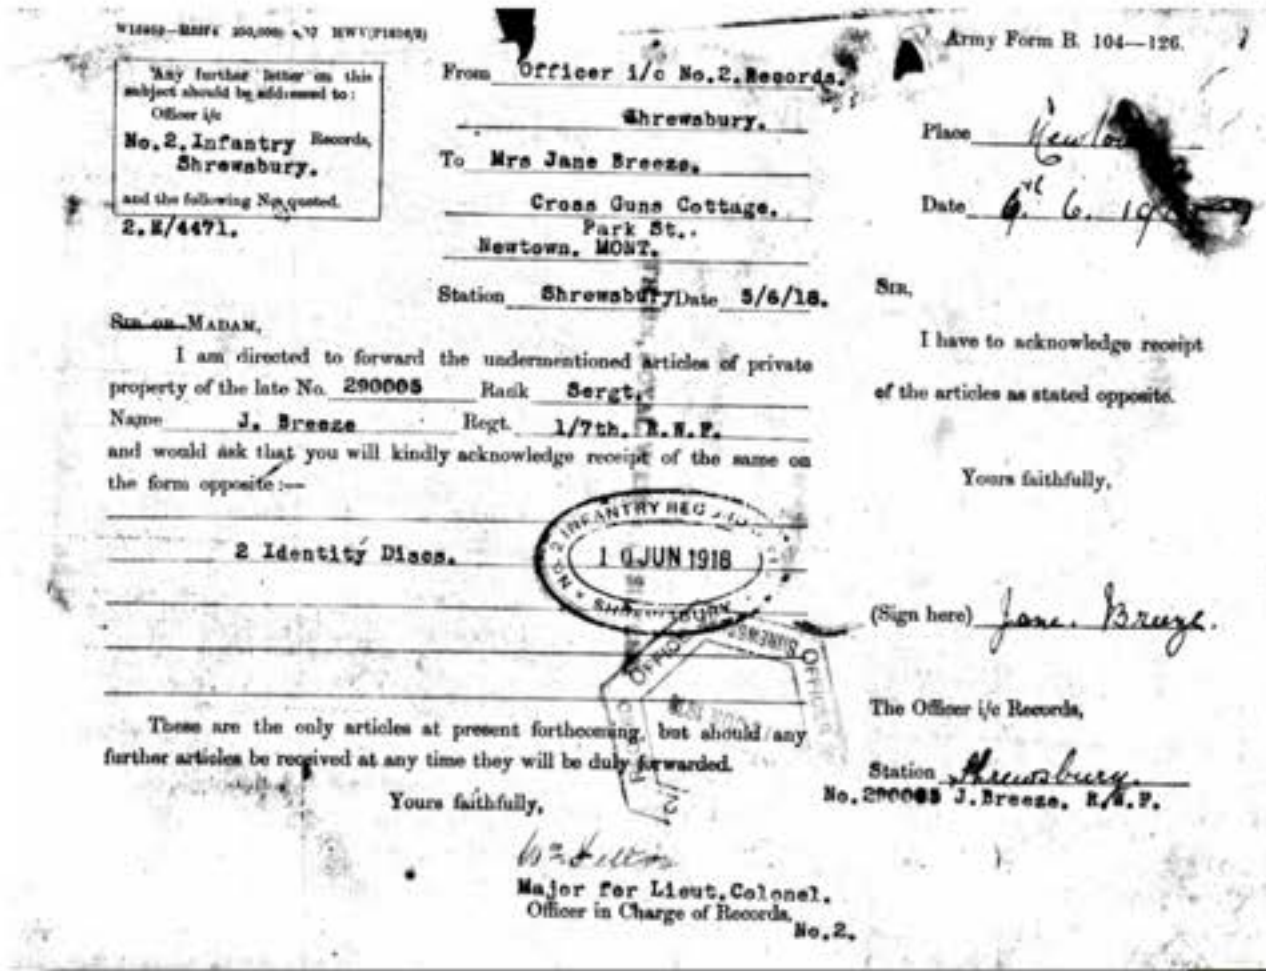 Army Form B. 104—126.
Any further letter on this
subject should be addressed to:
Officer i/c
No.2. Infantry Records,
Shrewsbury.
and the following No. quoted.
2.E/4471.
From Officer i/c No.2.Records.
Shrewsbury.
To Mrs Jane Breeze.
Cross Guns Cottage.
Park St..
Newtown. MONT.
Station Shrewsbury Date 5/6/18.
SIR OR MADAM,
I am directed to forward the undermentioned articles of private
property of the late No. 290005 Rank Sergt.
Name J. Breeze Regt. 1/7th. R.W.F.
and would ask that you will kindly acknowledge receipt of the same on
the form opposite:—
2 Identity Discs.
No. 2 INFANTRY
10 JUN 1918
SHREWSBURY
These are the only articles at present forthcoming, but should any
further articles be received at any time they will be duly forwarded.
Yours faithfully,
Major for Lieut.Colonel.
Officer in Charge of Records.
No.2.
Place
Date 6. 19
SIR,
I have to acknowledge receipt
of the articles as stated opposite.
Yours faithfully,
(Sign here) Jane. Breeze.
The Officer i/c Records,
Station Shrewsbury.
No. 290005 J.Breeze. R.W.F.